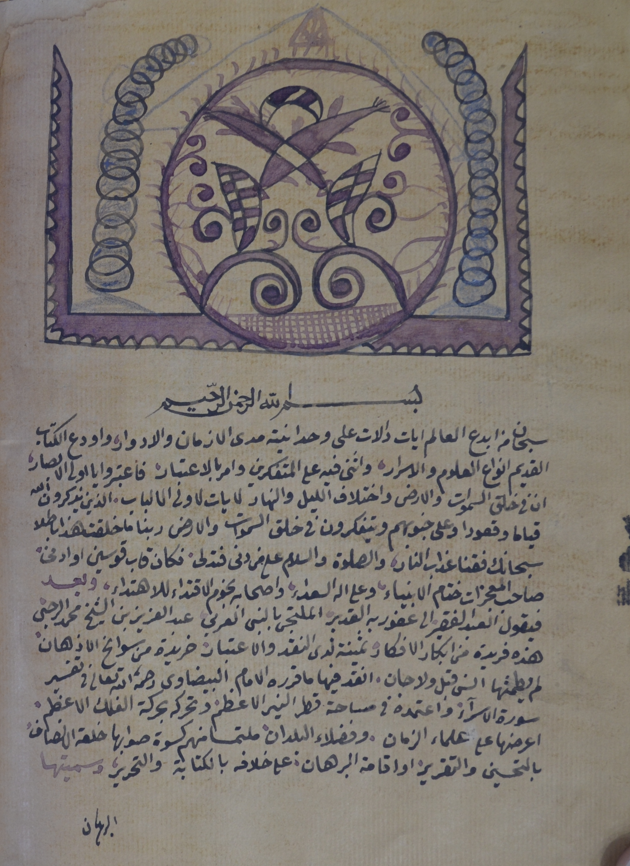 بسم الله الرحمن الرحيم
سبحان من ابدع العالم ايات دالات على وحدانيته مدى الازمان والادوار واودع الكتاب
القديم انواع العلوم والاسرار واثنى فيه على المتفكرين وامر بالاعتبار فاعتبروا يا اولى الابصار
ان في خلق السموات والارض واختلاف الليل والنهار لايات لاولى الالباب الذين يذكرون الله
قياما وقعودا وعلى جنوبهم ويتفكرون في خلق السموات والارض ربنا ما خلقت هذا باطلا
سبحانك فقنا عذاب النار والصلوة والسلام على من دنى فتدلى فكان قاب قوسين او ادنى
صاحب المعجزات ختام الانبياء وعلى اله السعداء واصحابه نجوم الاقتداء للاهتداء وبعد
فيقول العبد الفقير الى عفو ربه القدير الملتجى بالنبى العربى عبد العزيز بن الشيخ محمد الرحبى
هذه فريدة من ابكار الافكار ثمينة لدى النقد والاعتبار خريدة من سوانح الاذهان
لم يطمثها انس قبل ولا جان انقد فيها ما قرره الامام البيضاوى رحمه الله تعالى في تفسير
سورة الاسراء واعتمده في مساحة قطر النير الاعظم وتحركه بحركة الفلك الاعظم
اعرضها على علماء الزمان وفضلاء البلدان ملتمسا منهم كسوة صوابها حلة الانصاف
بالتحسين والتقرير او اقامة البرهان على خلافه بالكتابة والتحرير وسميتها
البرهان